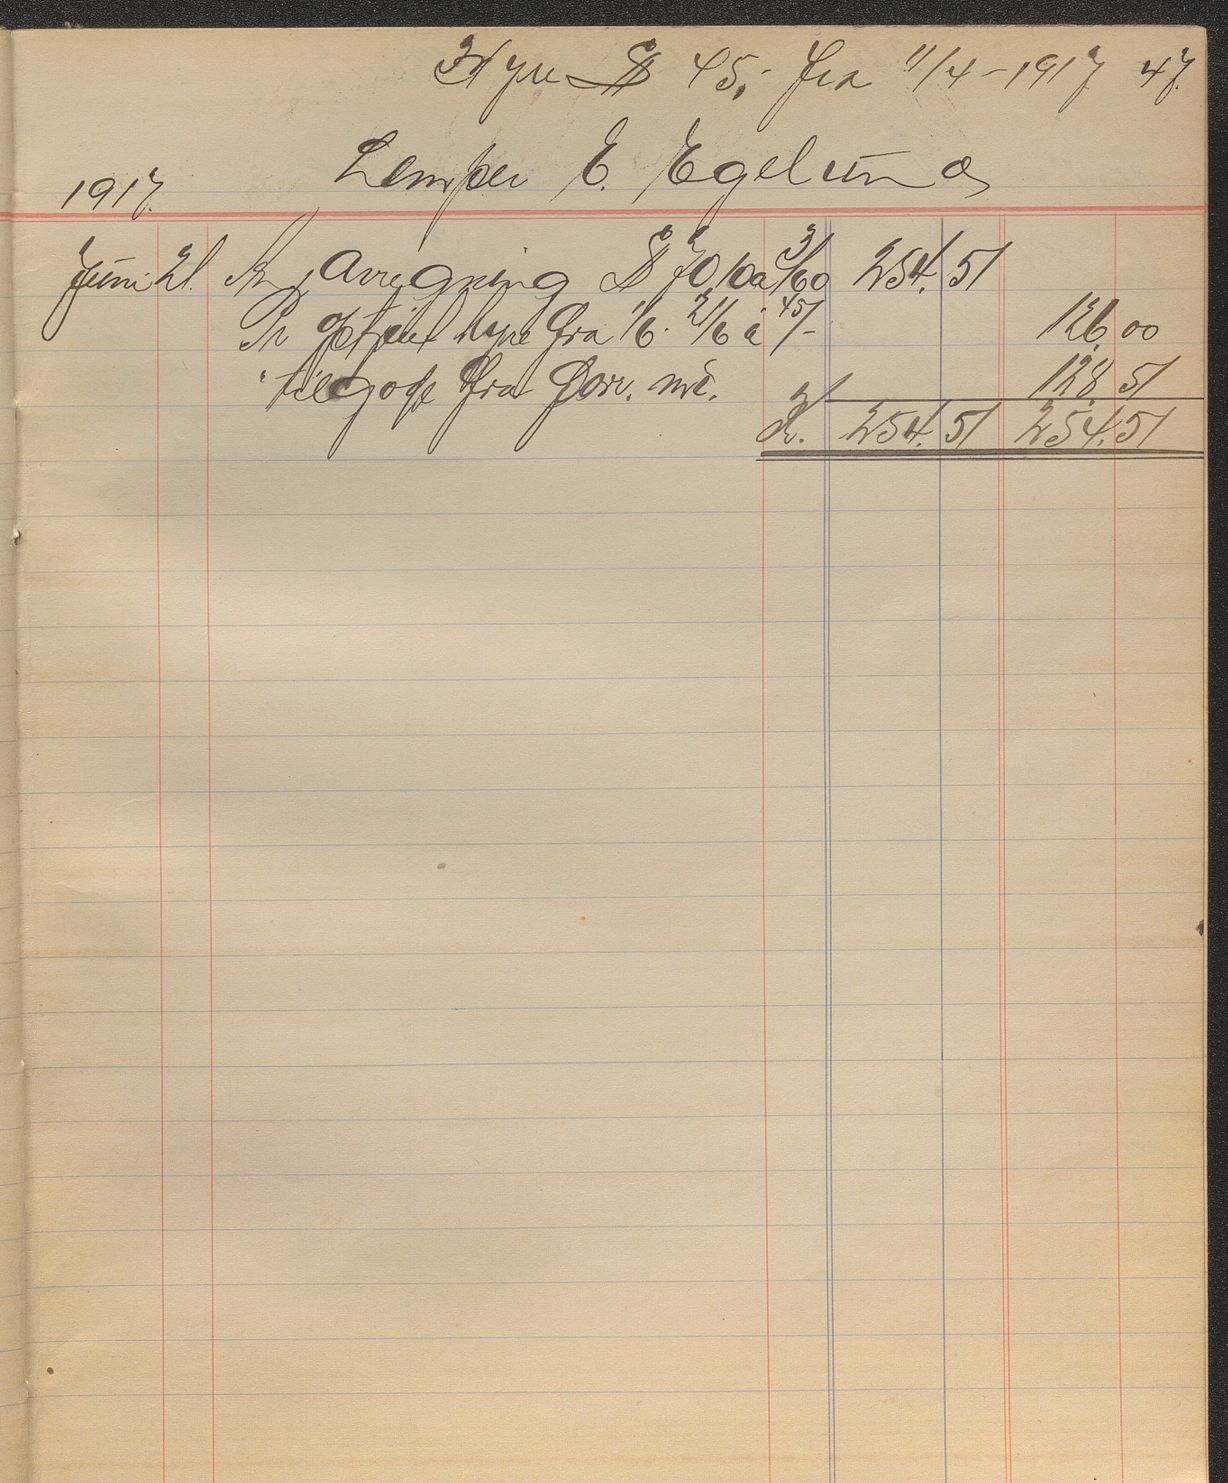 Hyre $ 45,- fra 11/4-1917. 47.
Lemper E. Egelund
1917.
Juni 21. An Avregning $ 70,70 a 3/60 254. 51
Pr optjent hyre fra 1/6. 21/6 a 45/- 126,00
" tilgode fra forr. md. 128,51
K. 254. 51 254. 51